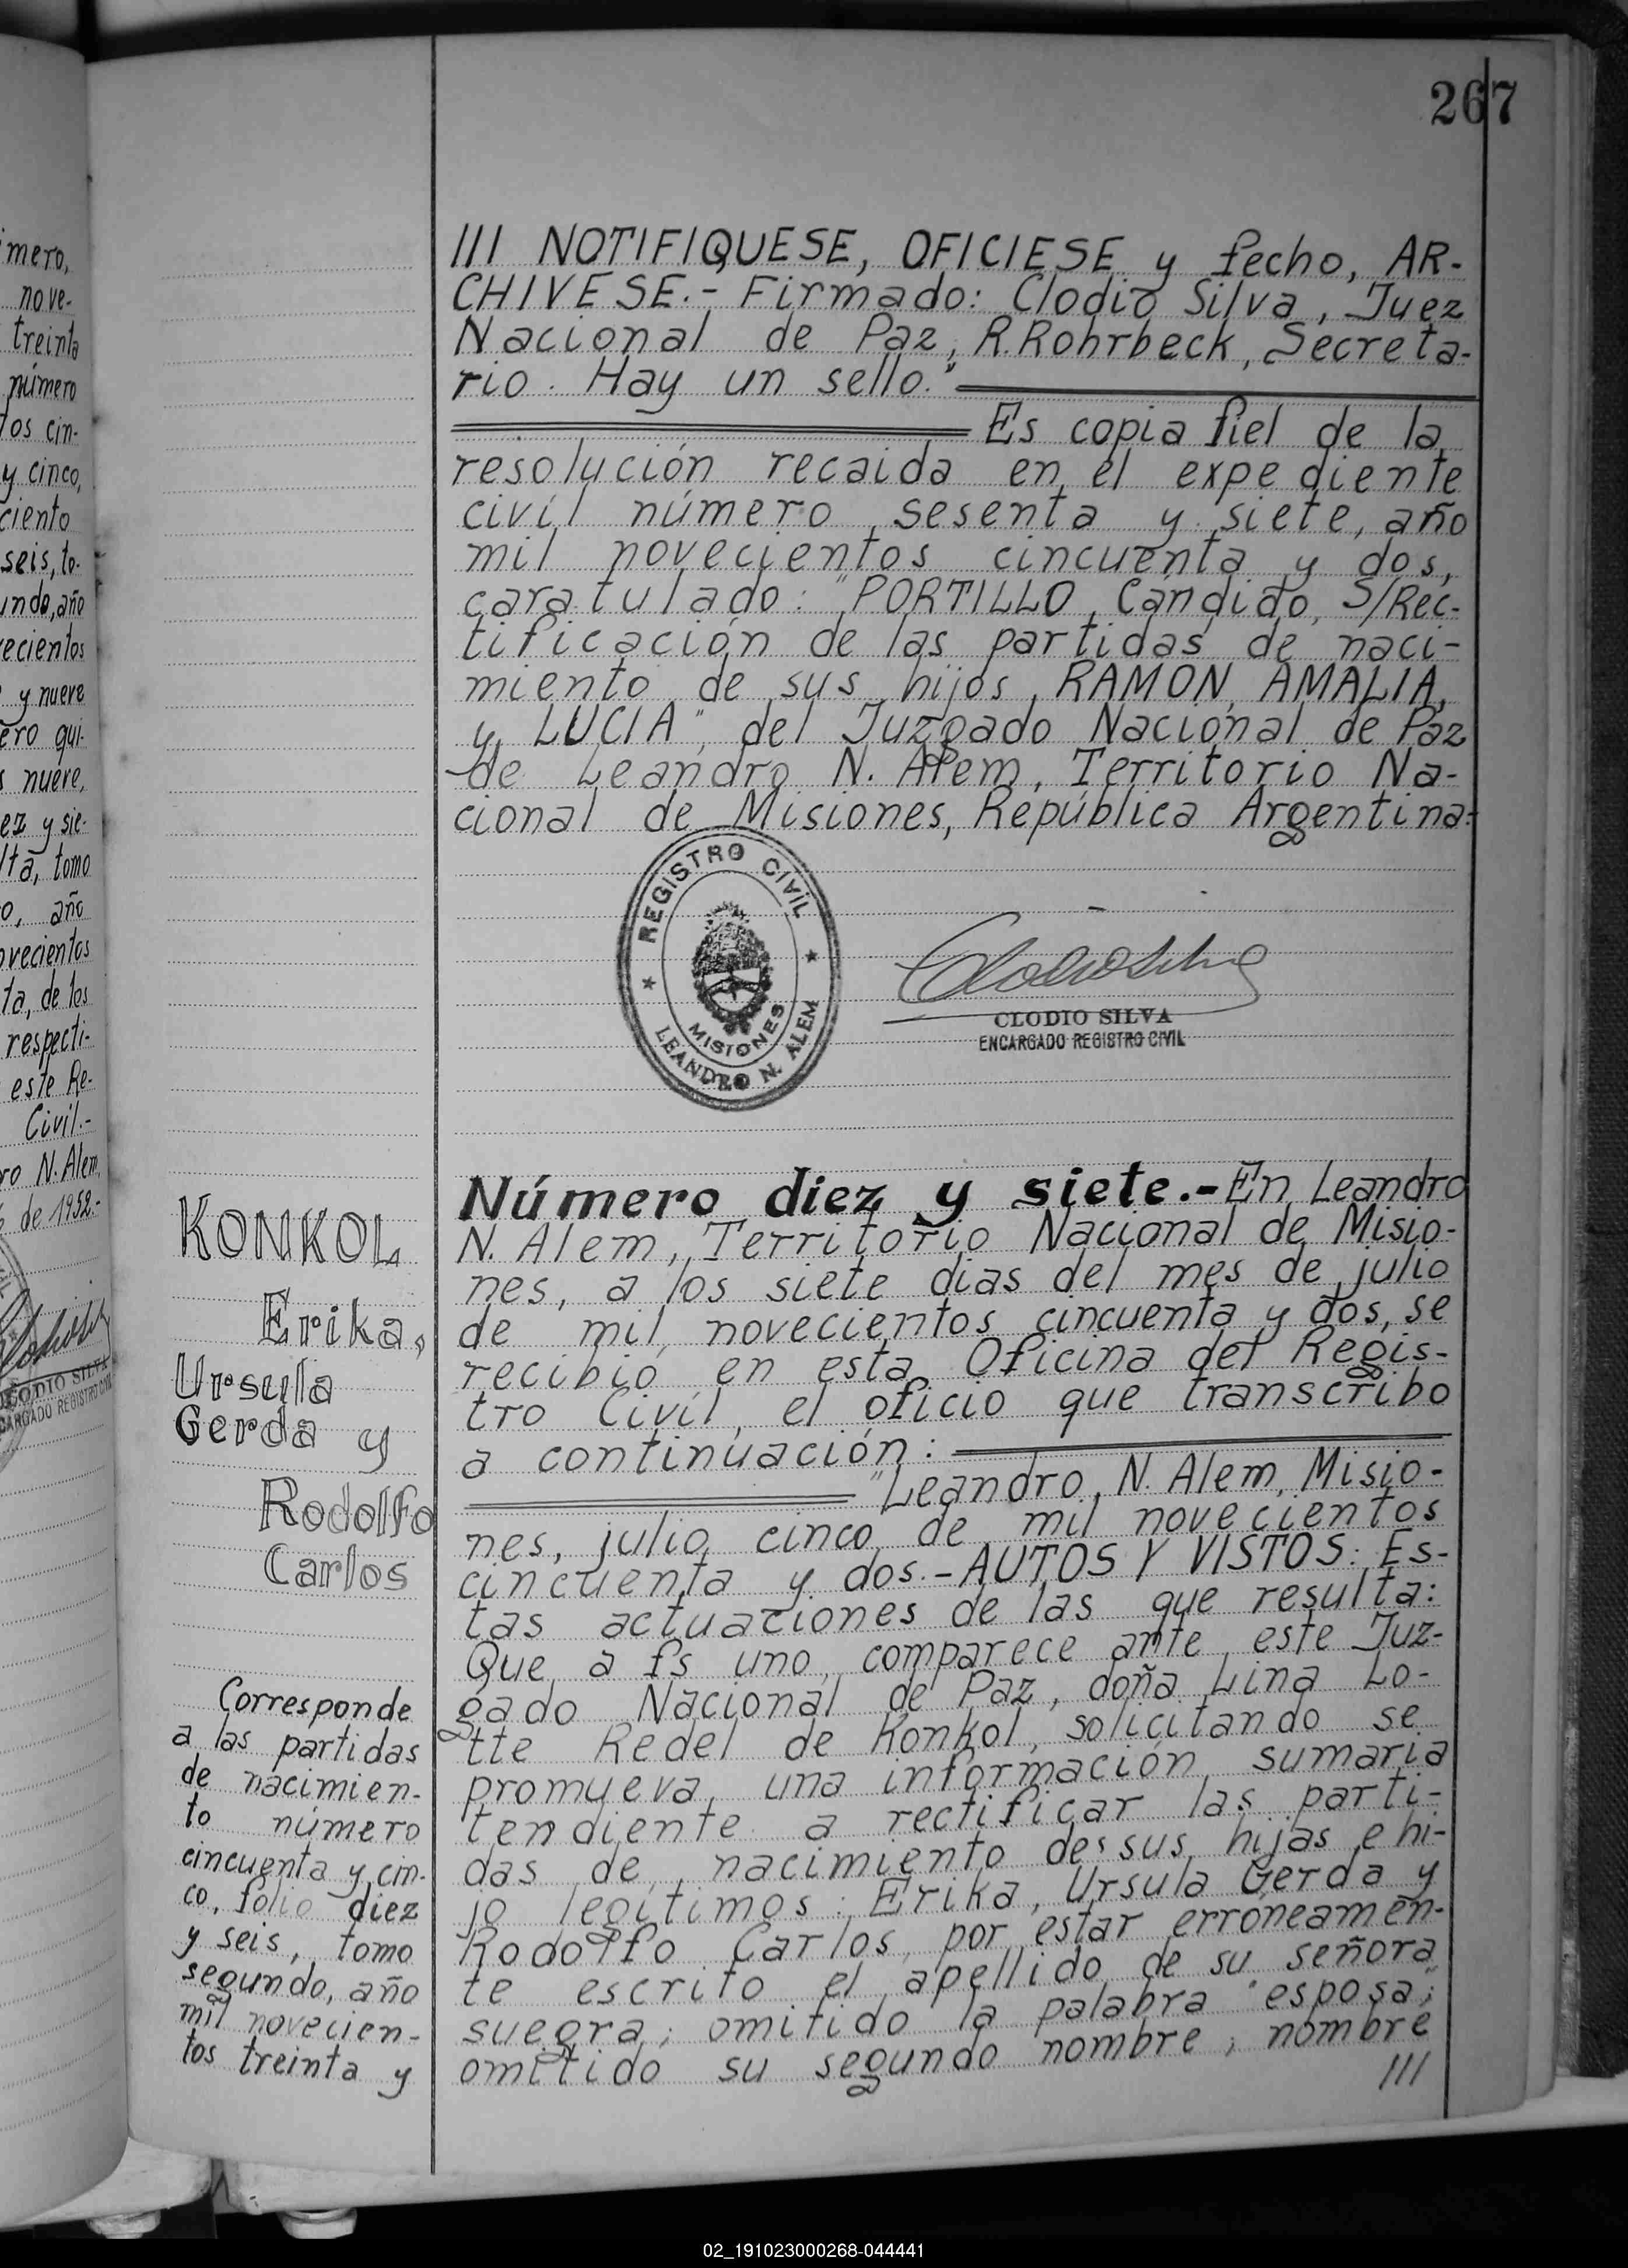 267
III NOTIFIQUESE, OFICIESE y fecho, AR-
CHIVESE.- Firmado: Clodio Silva, Juez
Nacional de Paz, R. Rohrbeck, Secreta-
rio. Hay un sello."
Es copia fiel de la
resolución recaida en el expediente
civil número sesenta y siete, año
mil novecientos cincuenta y dos,
caratulado: "PORTILLO, Cándido, S/Rec-
tificación de las partidas de naci-
miento de sus hijos, RAMON, AMALIA,
y LUCIA", del Juzgado Nacional de Paz
de Leandro N. Alem, Territorio Na-
cional de Misiones, República Argentina-
REGISTRO CIVIL
MISIONES
LEANDRO N. ALEM
CLODIO SILVA
ENCARGADO REGISTRO CIVIL
Número diez y siete.- En Leandro
N. Alem, Territorio Nacional de Misio-
nes, a los siete dias del mes de julio
de mil novecientos cincuenta y dos, se
recibió en esta Oficina del Regis-
tro Civil, el oficio que transcribo
a continuación:
"Leandro N. Alem, Misio-
nes, julio cinco de mil novecientos
cincuenta y dos.- AUTOS Y VISTOS: Es-
tas actuaciones de las que resulta:
Que a fs uno, comparece ante este Juz-
gado Nacional de Paz, doña Lina Lo-
tte Redel de Konkol, solicitando se
promueva una información sumaria
tendiente a rectificar las parti-
das de nacimiento de sus hijas e hi-
jo legítimos: Erika, Ursula Gerda y
Rodolfo Carlos, por estar erróneamen-
te escrito el apellido de su señora
suegra; omitido la palabra "esposa";
omitido su segundo nombre; nombre
III
KONKOL
Erika,
Ursula
Gerda y
Rodolfo
Carlos
Corresponde
a las partidas
de nacimien-
to número
cincuenta y cin-
co, folio diez
y seis, tomo
segundo, año
mil novecien-
tos treinta y
mero,
nove-
treinta
número
tos cin-
y cinco,
ciento
seis, to-
undo, año
vecientos
y nueve
ero qui-
nueve,
ez y sie-
lta, tomo
o, año
ovecientos
ta, de los
respecti-
este Re-
Civil.-
ro N. Alem,
de 1952.-
02_191023000268-044441